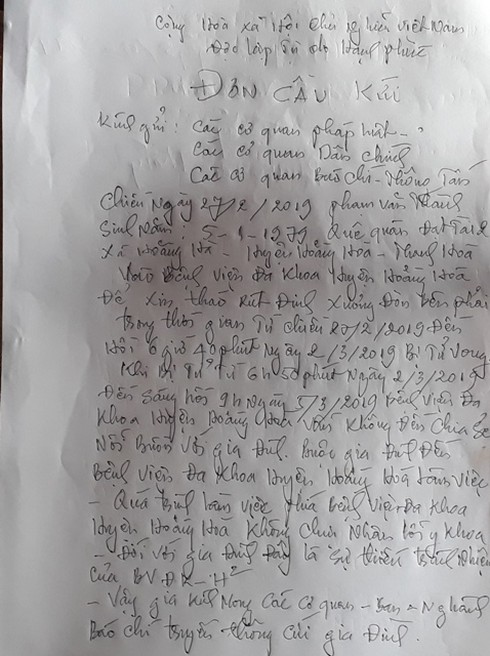 Cộng Hoà xã Hội chủ nghĩa việt Nam
Độc lập Tự do Hạnh phúc
ĐƠN CẦU KỨU
Kính gửi: Các cơ quan pháp luật -
Các cơ quan Dân chính
Các cơ quan Báo chí - Thông Tấn
Chiều Ngày 27/2/2019 phạm văn Thành
Sinh Năm: 5-1-1979 Quê quán Đạt Tài 2
xã Hoằng Hà - Huyện Hoằng Hoá - Thanh Hoá
vào Bệnh viện Đa Khoa Huyện Hoằng Hoá
Để xin tháo Rút Đinh xương Đòn Bên phải
trong thời gian Từ chiều 27/2/2019 Đến
Hồi 6 giờ 40 phút Ngày 2/3/2019 Bị Tử vong
Khi Bị Tử Từ 6h 50 phút Ngày 2/3/2019
Đến Sáng hồi 9h Ngày 5/3/2019 Bệnh viện Đa
Khoa Huyện Hoằng Hoá vẫn Không Đến Chia Sẻ
Nỗi Buồn với gia Đình. Buộc gia Đình Đến
Bệnh viện Đa Khoa Huyện Hoằng Hoá làm việc
- Quá trình làm việc phía Bệnh viện Đa Khoa
Huyện Hoằng Hoá Không chứu Nhận lỗi y Khoa
- Đối với gia Đình Đây là sự thiếu trách Nhiệm
của BVĐK-H²
- Vậy gia Kính Mong Các cơ quan - Ban - Nghành
Báo chí truyền thông Cứu gia Đình.